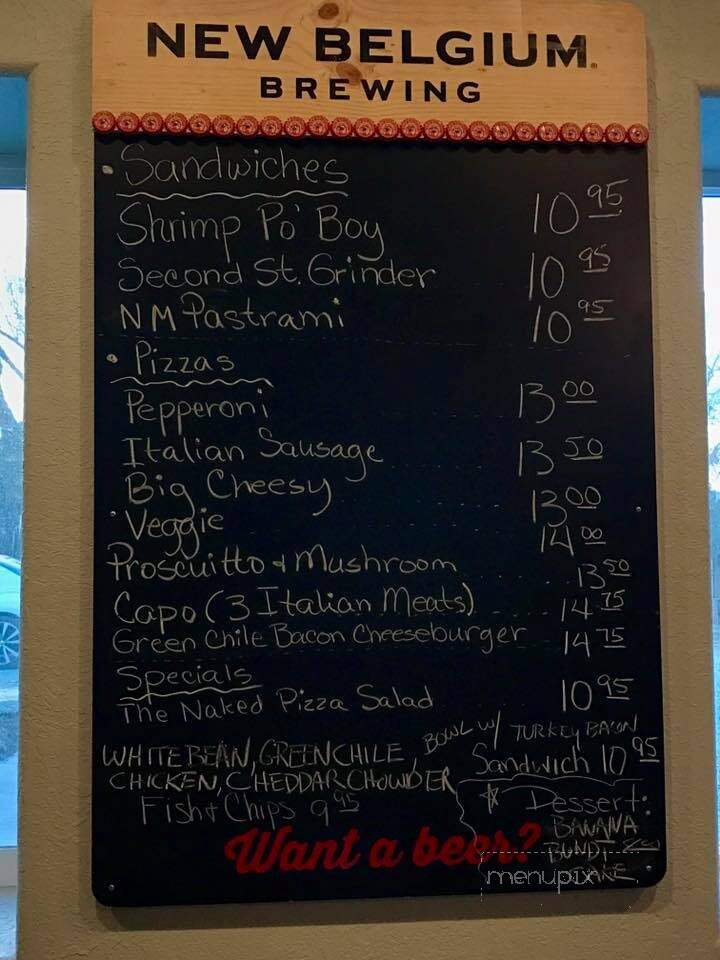 NEW BELGIUM.
BREWING
• Sandwiches
Shrimp Po' Boy 10 95
Second St. Grinder 10 95
NM Pastrami 10 95
• Pizzas
Pepperoni 13 00
Italian Sausage 13 50
Big Cheesy 13 00
Veggie 14 00
Proscuitto & Mushroom 13 50
Capo (3 Italian Meats) 14 75
Green Chile Bacon Cheeseburger 14 75
Specials
The Naked Pizza Salad 10 95
WHITE BEAN, GREEN CHILE,
CHICKEN, CHEDDAR CHOWDER
BOWL W/ TURKEY BACON
Sandwich 10 95
Fish & Chips 9 95
Dessert:
BANANA
BUNDT
CAKE
Want a beer?
menupix